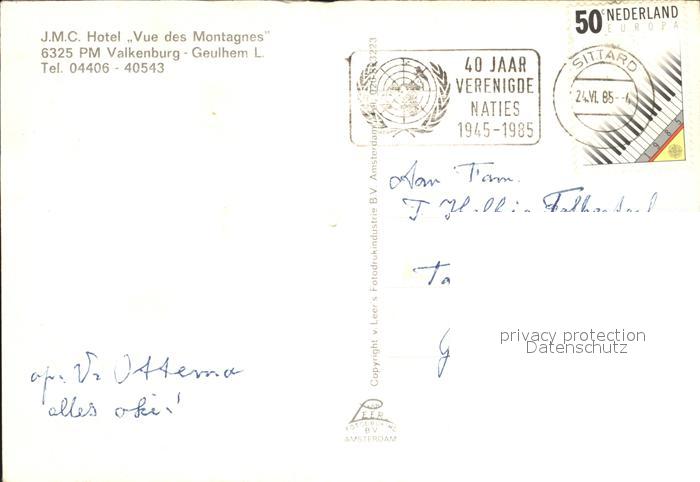 J.M.C. Hotel „Vue des Montagnes"
6325 PM Valkenburg - Geulhem L.
Tel. 04406 - 40543
40 JAAR
VERENIGDE
NATIES
1945-1985
SITTARD
24.VI. 85
50c NEDERLAND
EUROPA
1985
Aan Fam.
Ta
Copyright v. Leer's Fotodrukindustrie B.V. Amsterdam
privacy protection
Datenschutz
Ottema
alles oké!
VAN
LEER
B.V.
AMSTERDAM